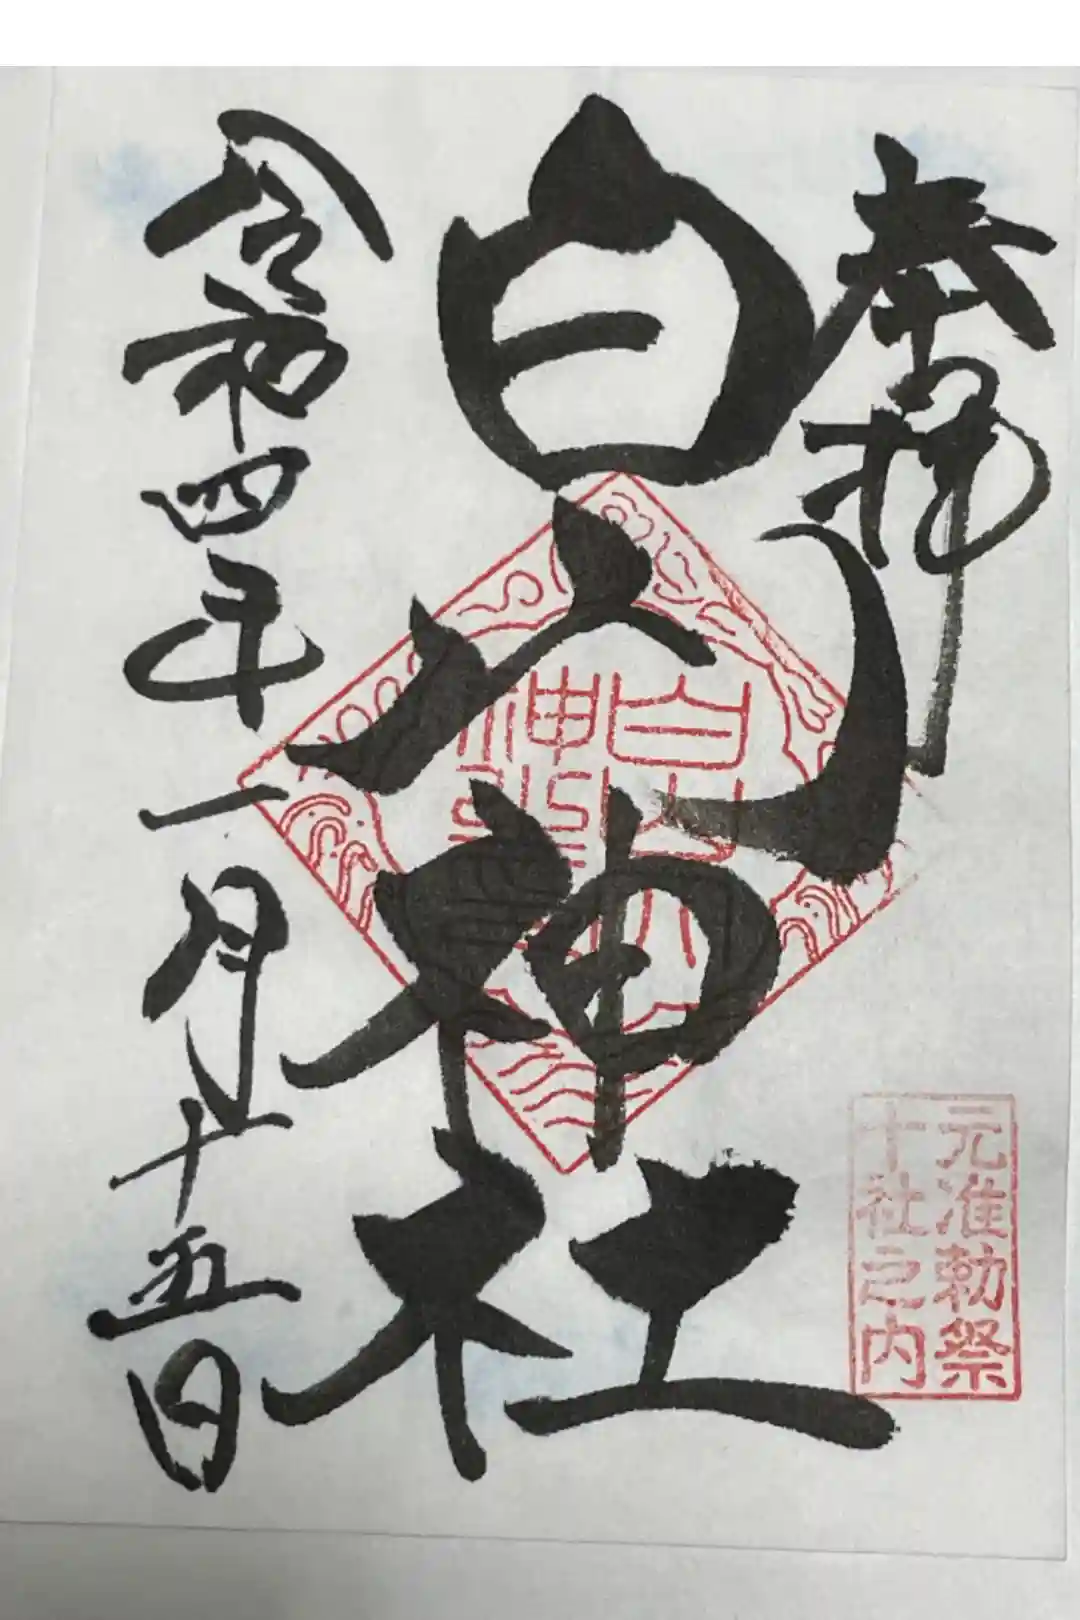 奉拝
白山神社
令和四年一月十五日
白山
神社
元准勅祭
十社之内